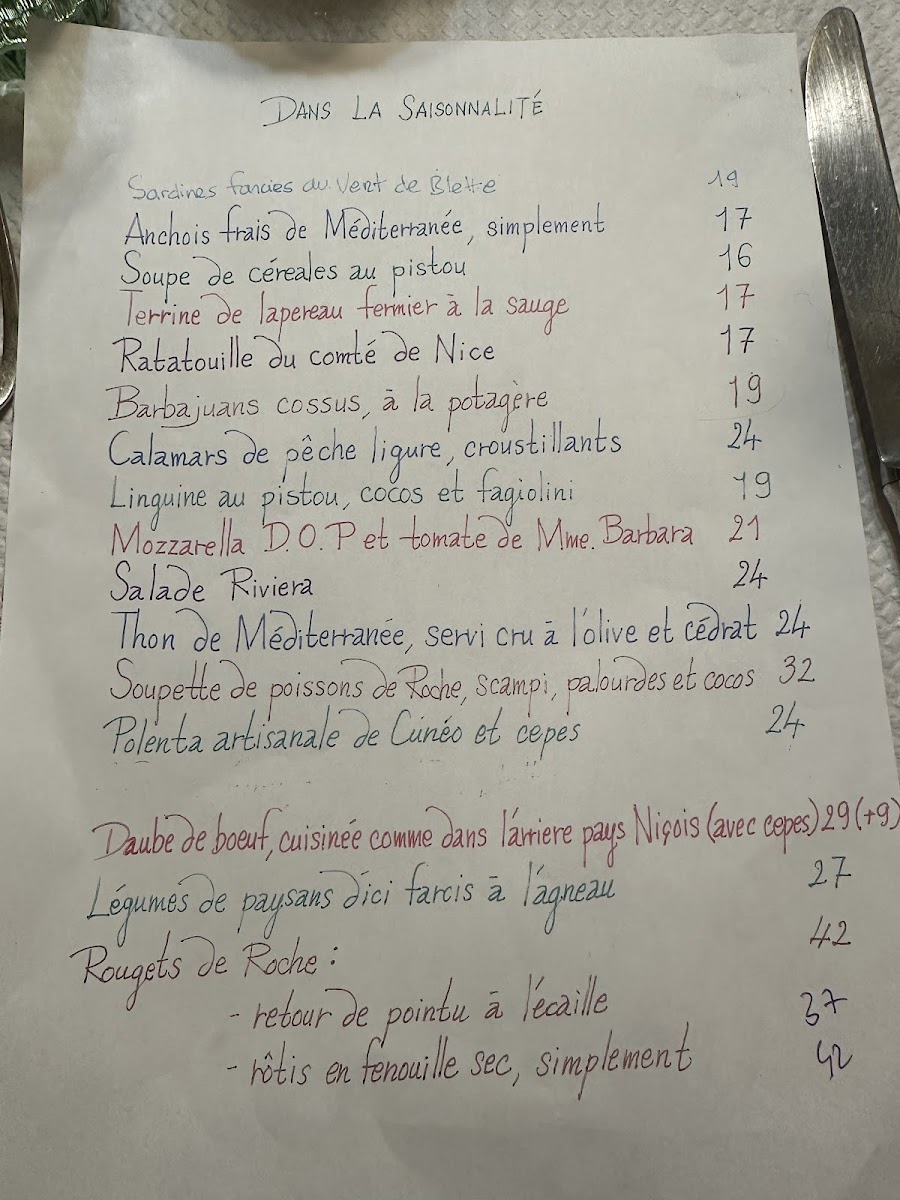 DANS LA SAISONNALITÉ
Sardines farcies au Vert de Blette 19
Anchois frais de Méditerranée, simplement 17
Soupe de céreales au pistou 16
Terrine de lapereau fermier à la sauge 17
Ratatouille du comté de Nice 17
Barbajuans cossus, à la potagère 19
Calamars de pêche ligure, croustillants 24
Linguine au pistou, cocos et fagiolini 19
Mozzarella D.O.P et tomate de Mme. Barbara 21
Salade Riviera 24
Thon de Méditerranée, servi cru à l'olive et cédrat 24
Soupette de poissons de Roche, scampi, palourdes et cocos 32
Polenta artisanale de Cúnéo et cepes 24
Daube de boeuf, cuisinée comme dans l'arriere pays Niçois (avec cepes) 29 (+9)
Légumes de paysans d'ici farcis à l'agneau 27
Rougets de Roche : 42
- retour de pointu à l'écaille 37
- rôtis en fenouille sec, simplement 42